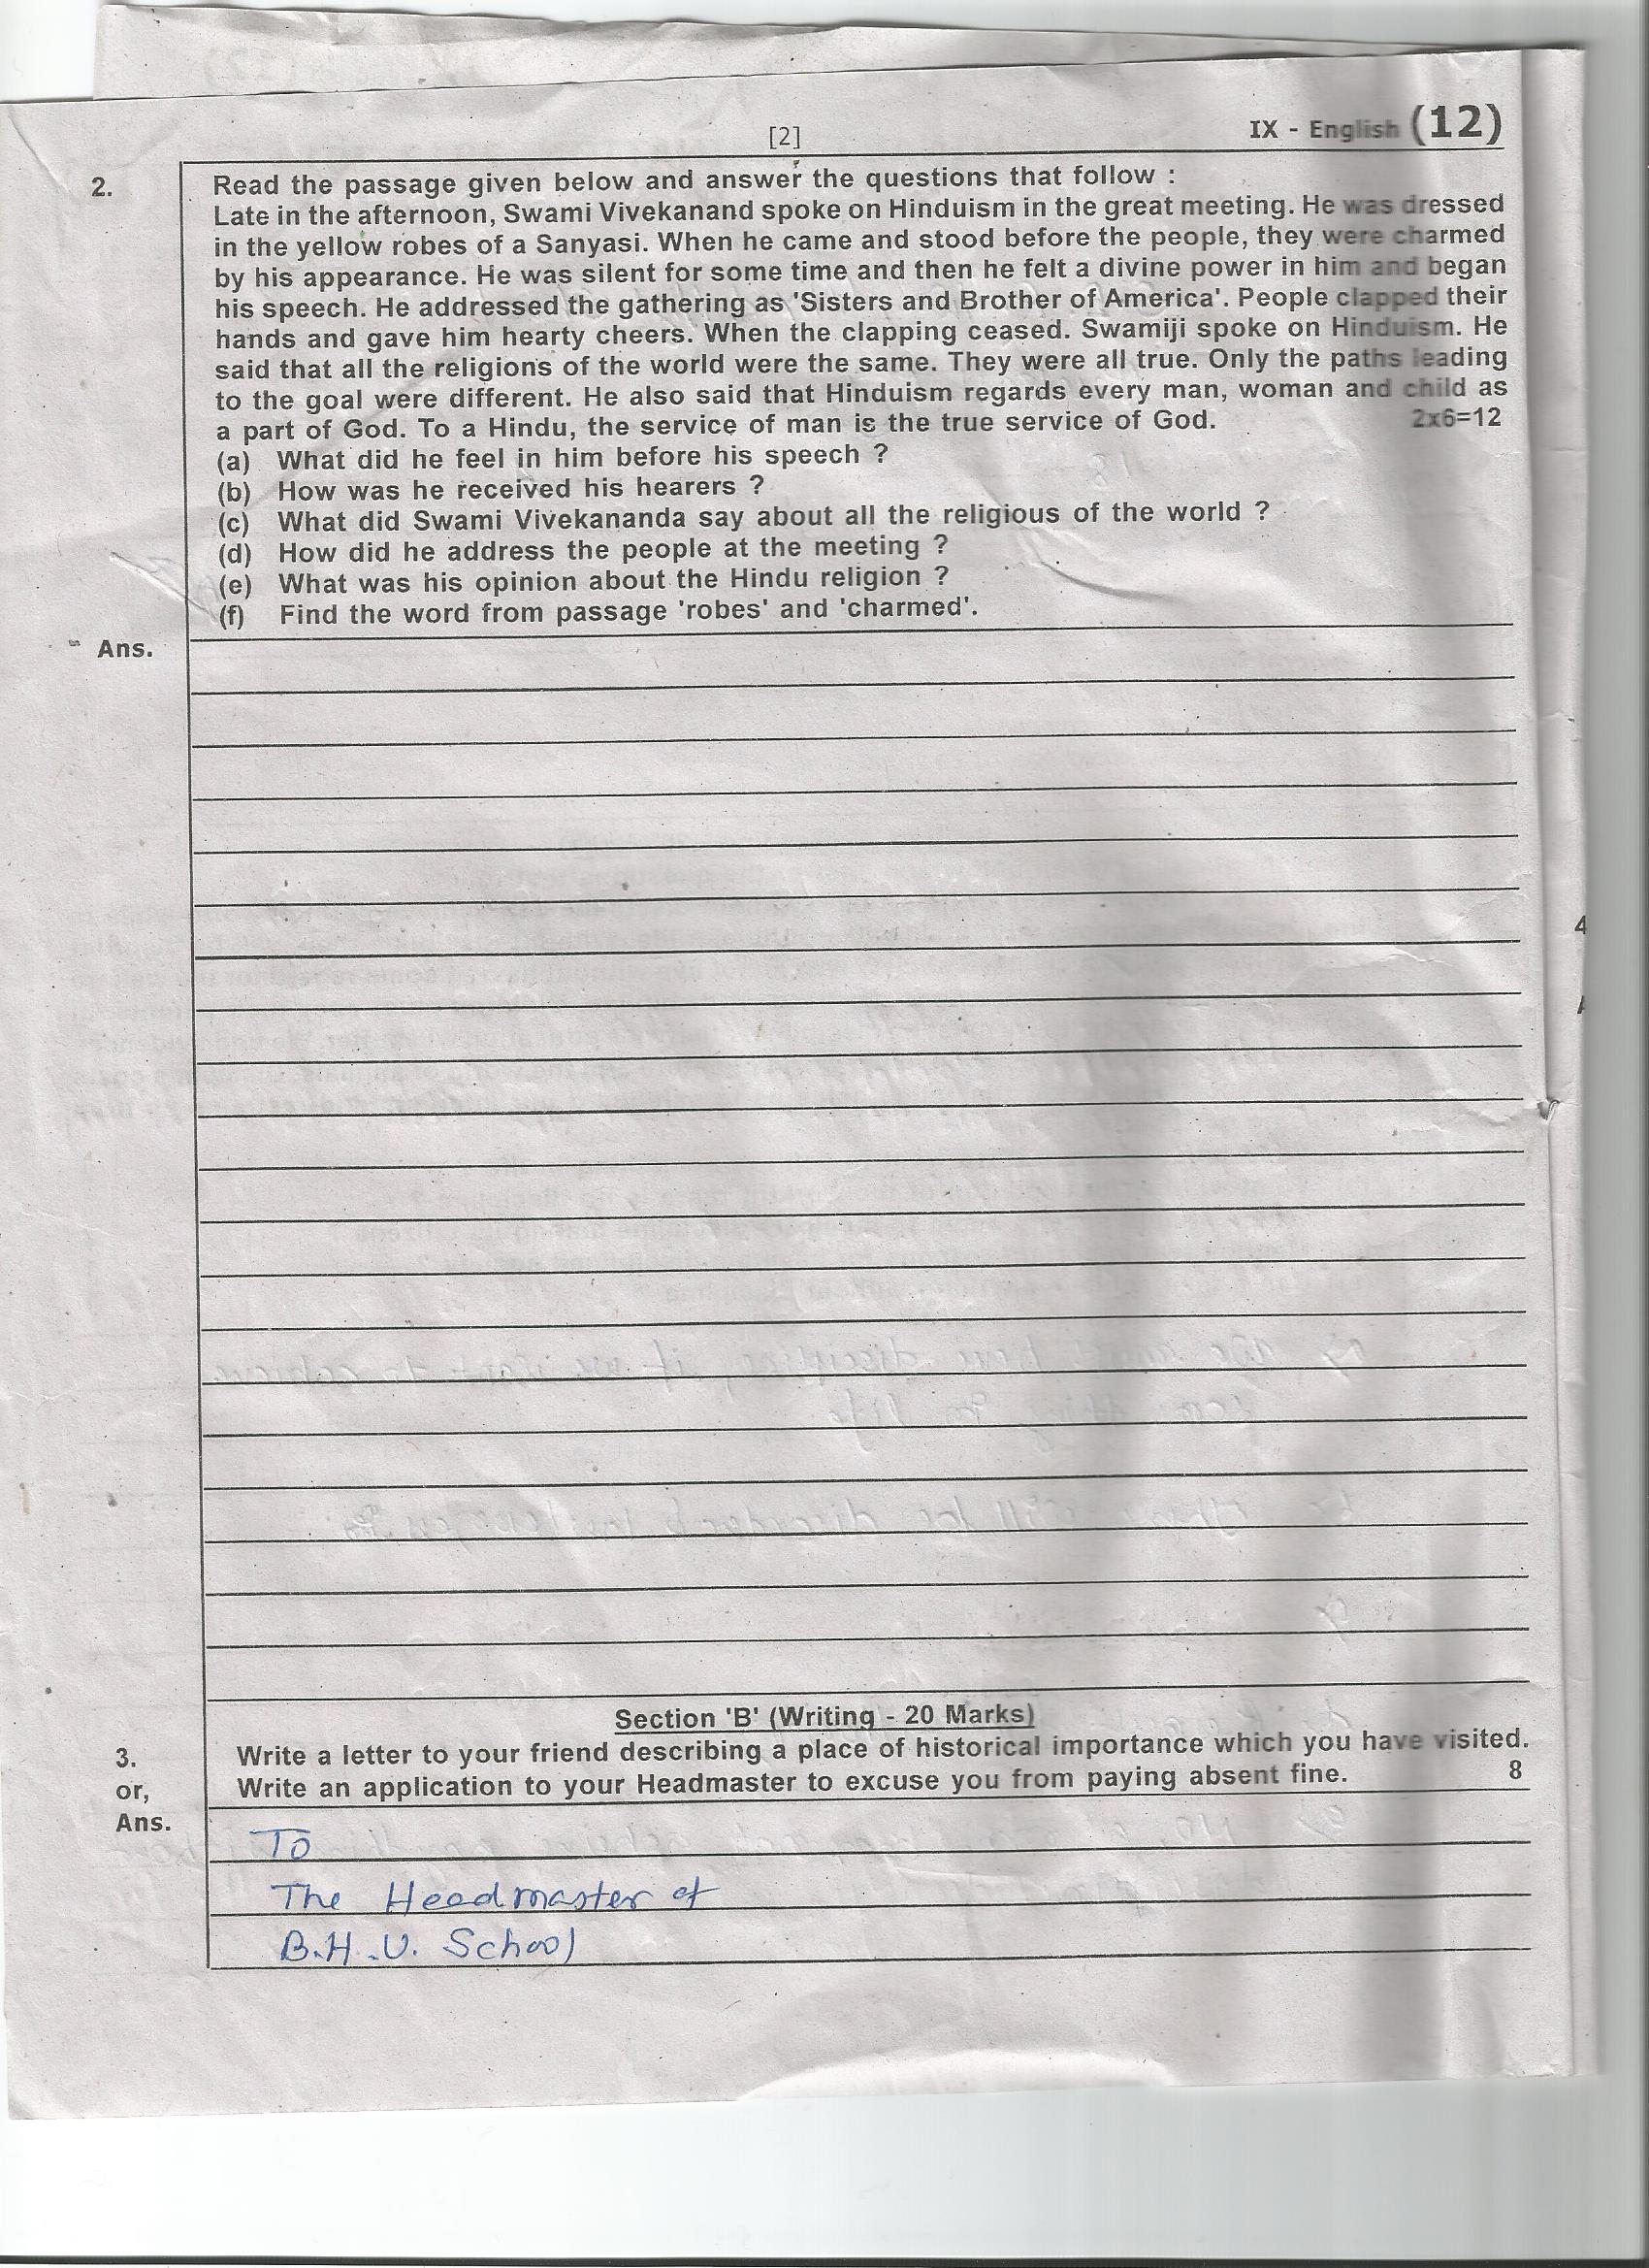 [2]
IX - English (12)
2. Read the passage given below and answer the questions that follow :
Late in the afternoon, Swami Vivekanand spoke on Hinduism in the great meeting. He was dressed
in the yellow robes of a Sanyasi. When he came and stood before the people, they were charmed
by his appearance. He was silent for some time and then he felt a divine power in him and began
his speech. He addressed the gathering as 'Sisters and Brother of America'. People clapped their
hands and gave him hearty cheers. When the clapping ceased. Swamiji spoke on Hinduism. He
said that all the religions of the world were the same. They were all true. Only the paths leading
to the goal were different. He also said that Hinduism regards every man, woman and child as
a part of God. To a Hindu, the service of man is the true service of God. 2x6=12
(a) What did he feel in him before his speech ?
(b) How was he received his hearers ?
(c) What did Swami Vivekananda say about all the religious of the world ?
(d) How did he address the people at the meeting ?
(e) What was his opinion about the Hindu religion ?
(f) Find the word from passage 'robes' and 'charmed'.
Ans.
4
Section 'B' (Writing - 20 Marks)
3. Write a letter to your friend describing a place of historical importance which you have visited.
or, Write an application to your Headmaster to excuse you from paying absent fine. 8
Ans.
To
The Headmaster of
B.H.U. School